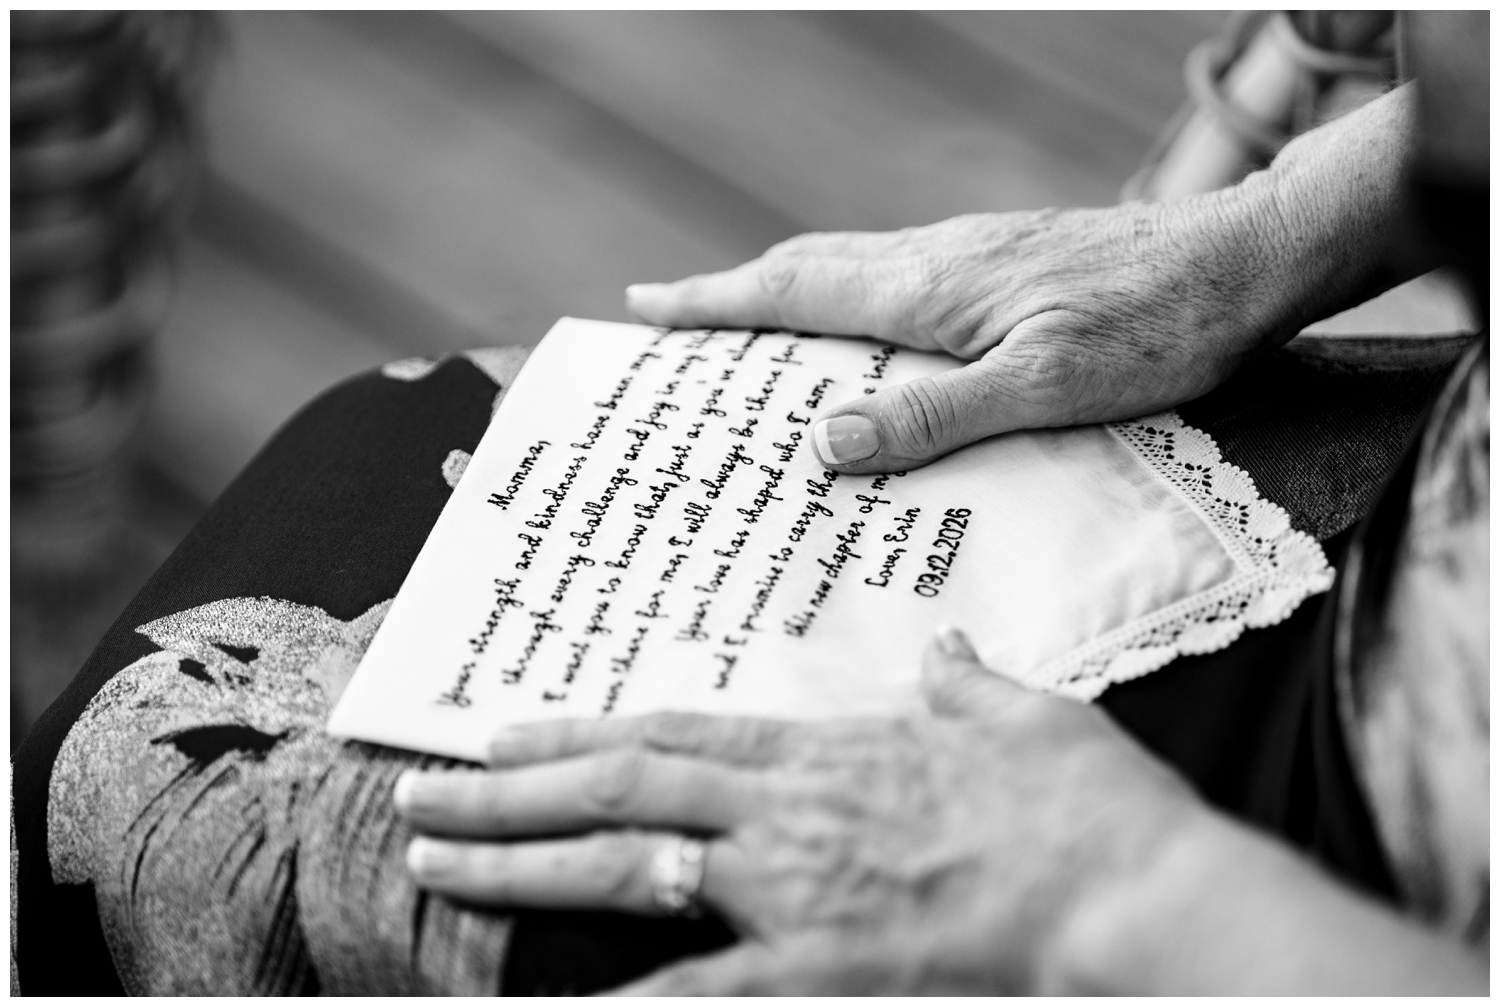 Momma,
Your strength and kindness have been my
through every challenge and joy in my
I want you to know that, just as you've
been there for me, I will always be there for
Your love has shaped who I am,
and I promise to carry into
this new chapter of
Love, Erin
09.12.2026